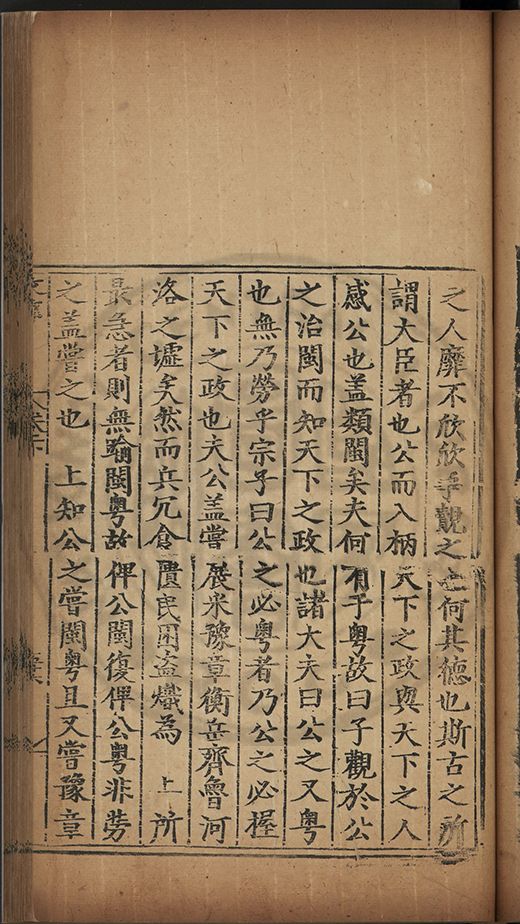 之人靡不欣欣乎覩之之何其德也斯古之所
謂大臣者也公而入柄天下之政與天下之人
感公也盖類閩矣夫何有于粤故曰子觀於公
之治閩而知天下之政也諸大夫曰公之又粤
也無乃勞乎宗子曰公之必粤者乃公之必握
天下之政也夫公盖嘗展采豫章衡岳齊魯河
洛之墟矣然而兵冗食匱民困盗熾為 上所
最急者則無踰閩粤故俾公閩復俾公粤非勞
之盖嘗之也 上知公之嘗閩粤且又嘗豫章